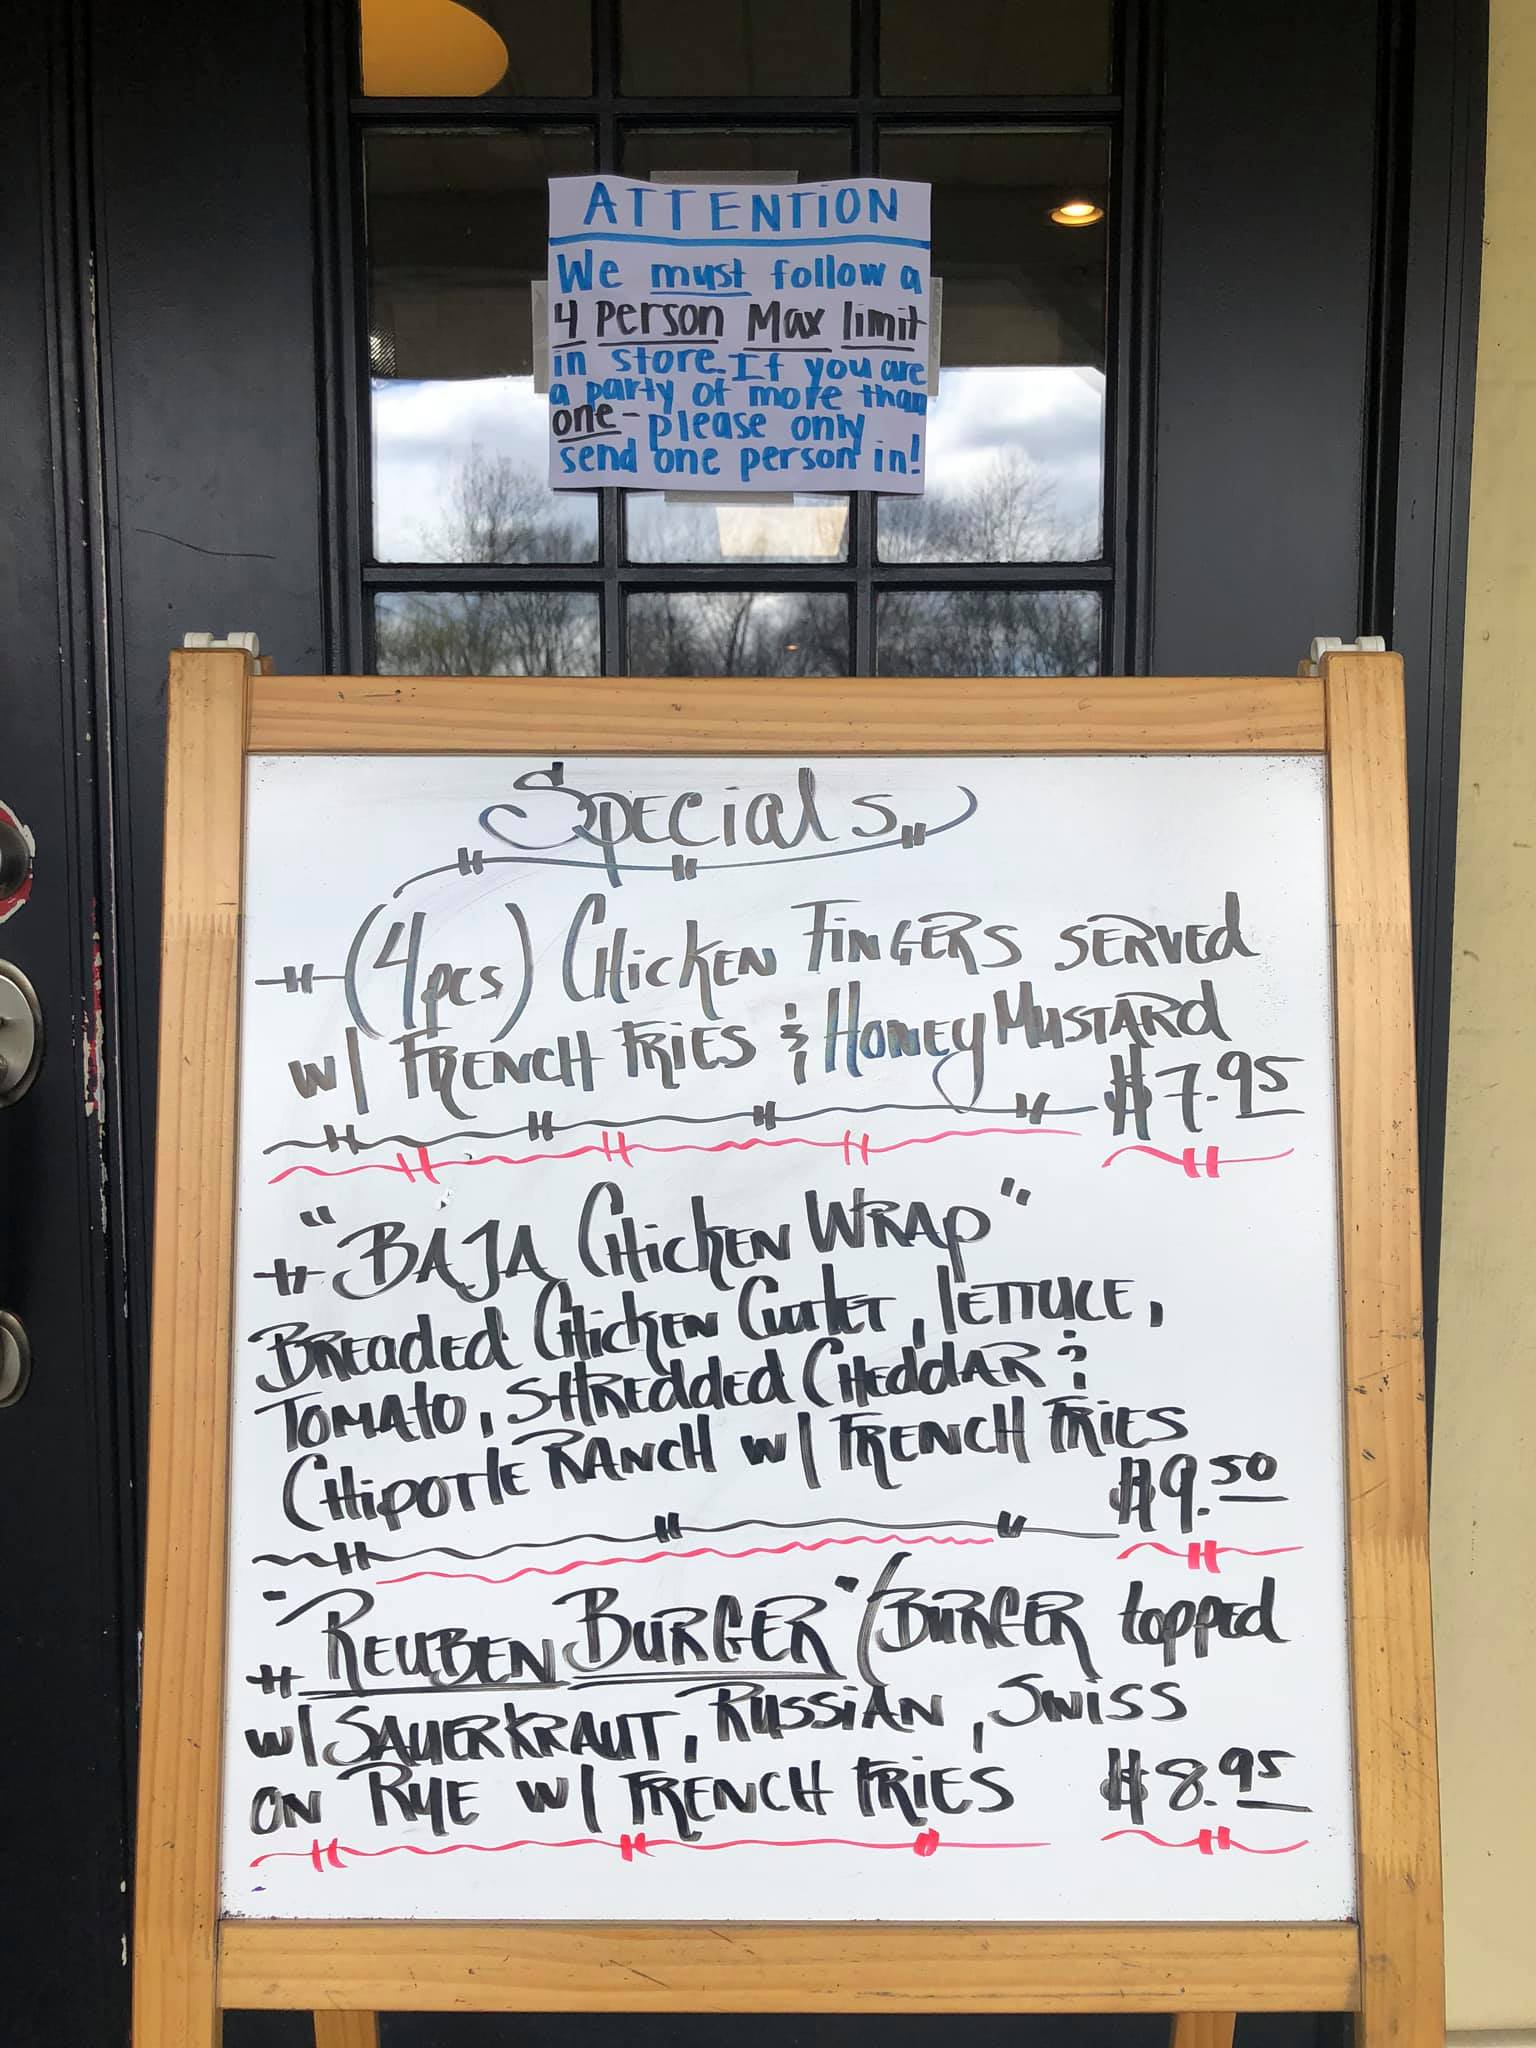 ATTENTION
We must follow a
4 Person Max limit
in store. If you are
a party of more than
one - please only
send one person in!
Specials
(4pcs) Chicken Fingers served
w/ French Fries & Honey Mustard
$7.95
"Baja Chicken Wrap"
Breaded Chicken Cutlet, lettuce,
Tomato, shredded Cheddar &
Chipotle Ranch w/ French Fries
$9.50
"Reuben Burger" (Burger topped
w/ Sauerkraut, Russian, Swiss
on Rye w/ French Fries $8.95